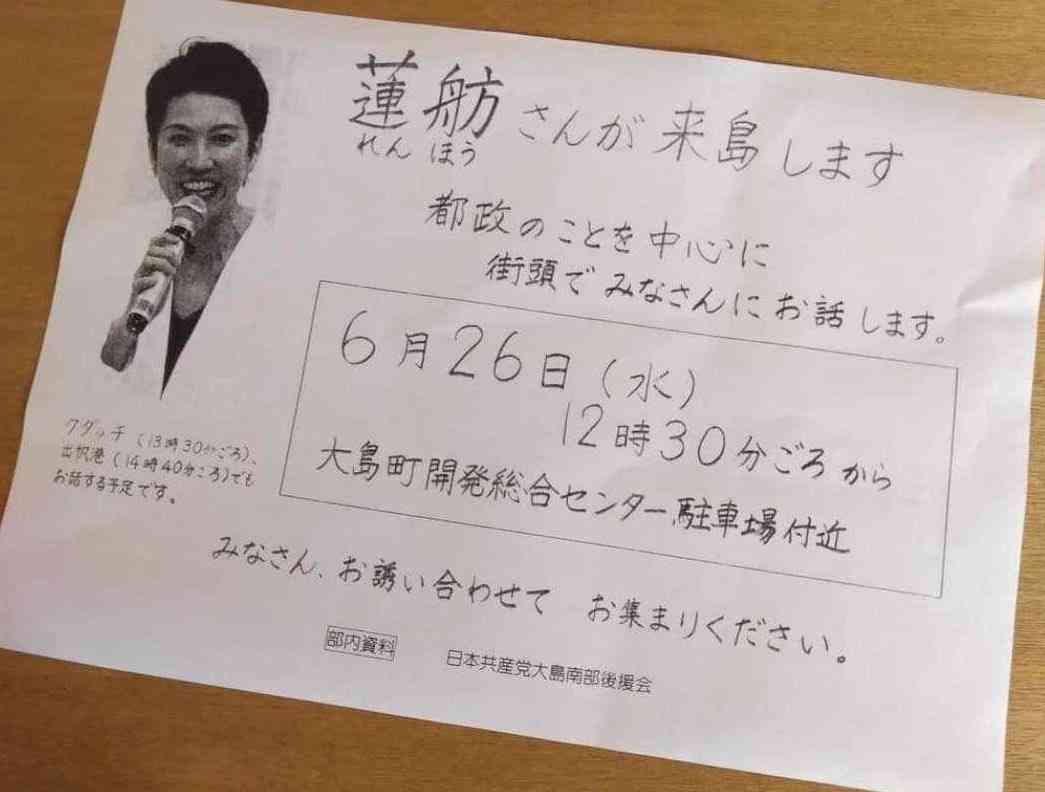 蓮舫さんが来島します
れんほう
都政のことを中心に
街頭でみなさんにお話します。
6月26日(水)
12時30分ごろから
大島町開発総合センター駐車場付近
クダッチ(13時30分ごろ)、
出帆港(14時40分ころ)でも
お話する予定です。
みなさん、お誘い合わせて お集まりください。
部内資料
日本共産党大島南部後援会